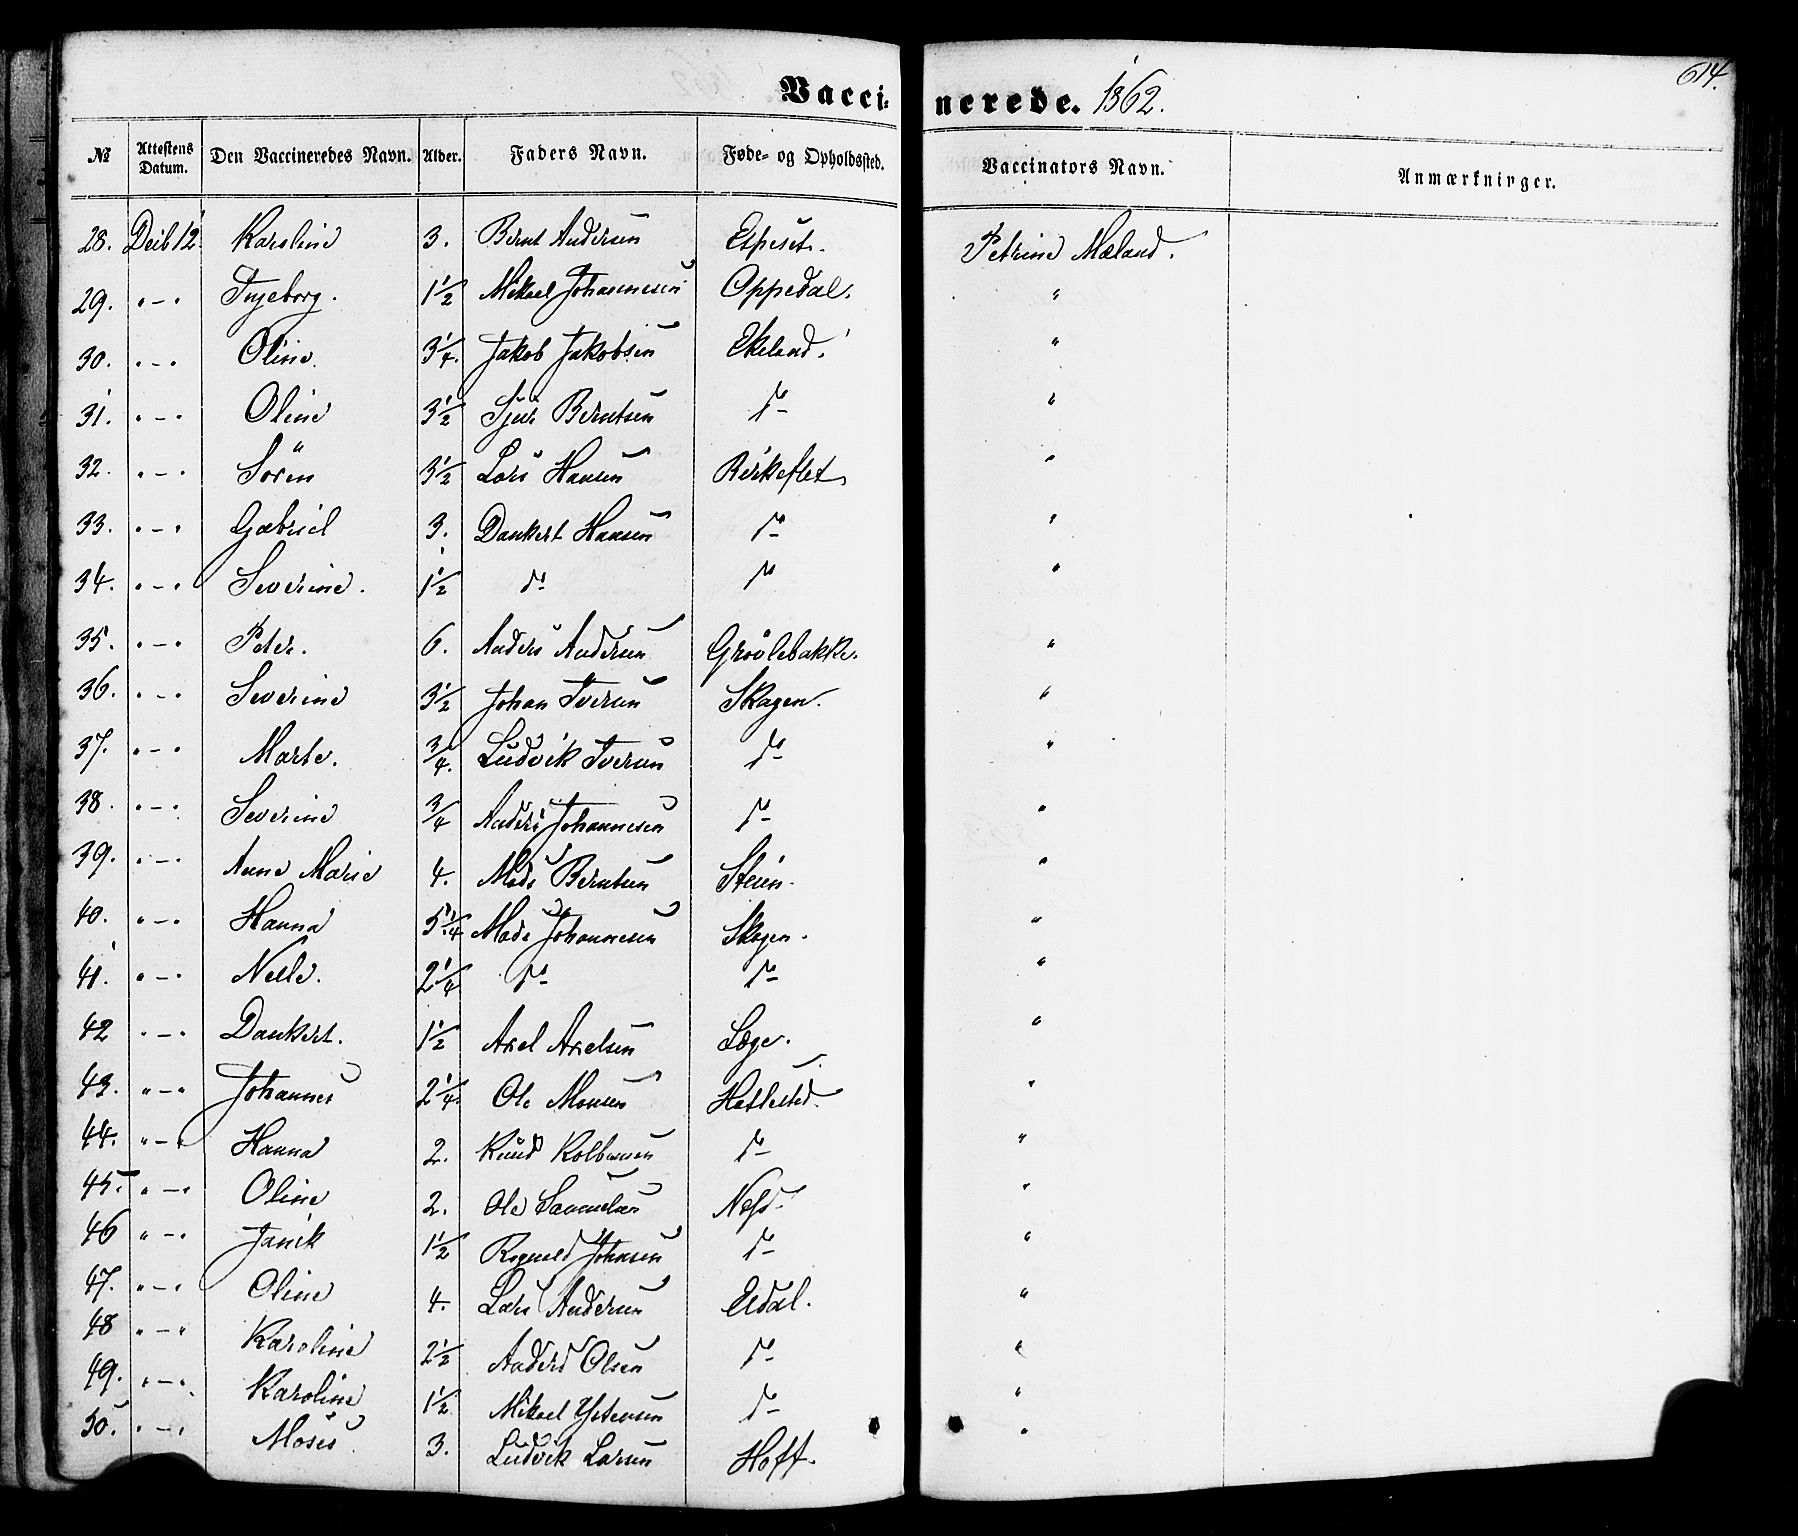 614.
Vaccinerede. 1862.
№ Attestens Datum. Den Vaccineredes Navn. Alder. Faders Navn. Føde- og Opholdssted. Vaccinators Navn. Anmærkninger.
28. Karoline 3. Bernt Andersen Espeset. Petrine Mæland.
29. " — " Ingeborg. 1½ Mikael Johannesen Oppedal. "
30. " — " Oline. 3¼. Jakob Jakobsen Ekeland. "
31. " — " Oline 3½ Sjur Berntsen do "
32. " — " Søren 3½ Lars Hansen Birkeflet "
33. " — " Gabriel 3. Dankert Hansen do "
34. " — " Severine. 1½ do do "
35. " — " Peter. 6. Anders Andersen Grovlebakke. "
36. " — " Severine 3½ Johan Iversen Skagen. "
37. " — " Marte. ¾. Ludvik Iversen do "
38. " — " Severine ¾ Anders Johannesen do "
39. " — " Anne Marie 4. Mads Berntsen Steien. "
40. " — " Hanna 5¼ Mads Johannesen Skagen. "
41. " — " Neele. 2¼ do do "
42 " — " Dankert. 1½ Axel Axelsen Læge. "
43. " — " Johannes 2¼. Ole Monsen Hatlested. "
44. " — " Hanna 2. Knud Kolbensen do "
45. " — " Oline 2. Ole Samuelsen "
46 " — " Janik 1½ Rognald Johnsen do "
47. " — " Oline 4. Lars Andersen Eidal. "
48 " — " Karoline 2½ Anders Olsen do "
49. " — " Karoline 1½ Mikael do "
50. " — " Moses 3. Ludvik Larsen Hoff. "